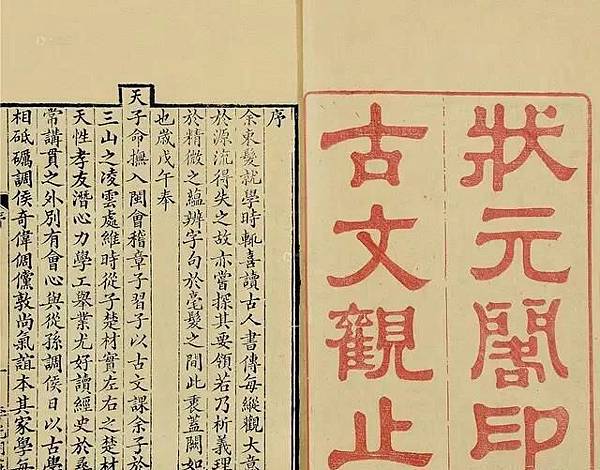 狀元閣印
古文觀止
序
余束髮就學時輒喜讀古人書傳每縱觀大意
於源流得失之故亦嘗探其要領若乃析義理
於精微之蘊辨字句於毫髮之間此衷蓋闕如
也歲戊午奉
天子命撫入閩會稽章子習子以古文課余子於
三山之凌雲處維時從子楚材實左右之楚材
天性孝友潛心力學工舉業尤好讀經史於尋
常講貫之外別有會心與從孫調侯日以古學
相砥礪調侯奇偉倜儻敦尚氣誼本其家學每